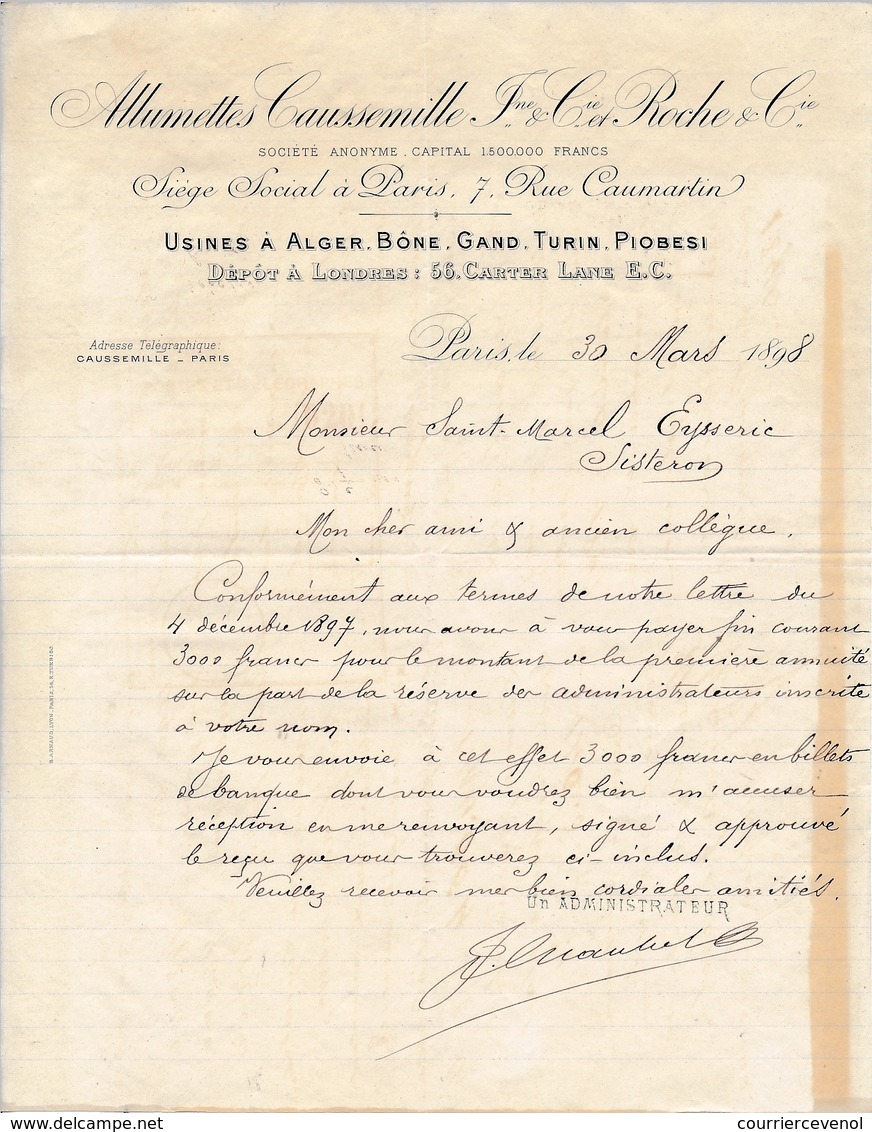 Allumettes Caussemille Jne & Cie et Roche & Cie
SOCIÉTÉ ANONYME. CAPITAL 1.500.000 FRANCS
Siége Social à Paris, 7, Rue Caumartin
USINES À ALGER, BÔNE, GAND, TURIN, PIOBESI
DÉPÔT À LONDRES : 56, CARTER LANE E.C.
Adresse Télégraphique:
CAUSSEMILLE _ PARIS
Paris, le 30 Mars 1898
Monsieur Saint-Marcel Eysseric
Sisteron
Mon cher ami & ancien collègue,
Conformément aux termes de notre lettre du
4 décembre 1897, nous avons à vous payer fin courant
3000 francs pour le montant de la première annuité
sur la part de la réserve des administrateurs inscrite
à votre nom.
Je vous envoie à cet effet 3000 francs en billets
de banque dont vous voudrez bien m'accuser
réception en me renvoyant, signé & approuvé
le reçu que vous trouverez ci-inclus.
Veuillez recevoir mes bien cordiales amitiés.
Un ADMINISTRATEUR
B. ARNAUD, LYON, PARIS
courriercevenol